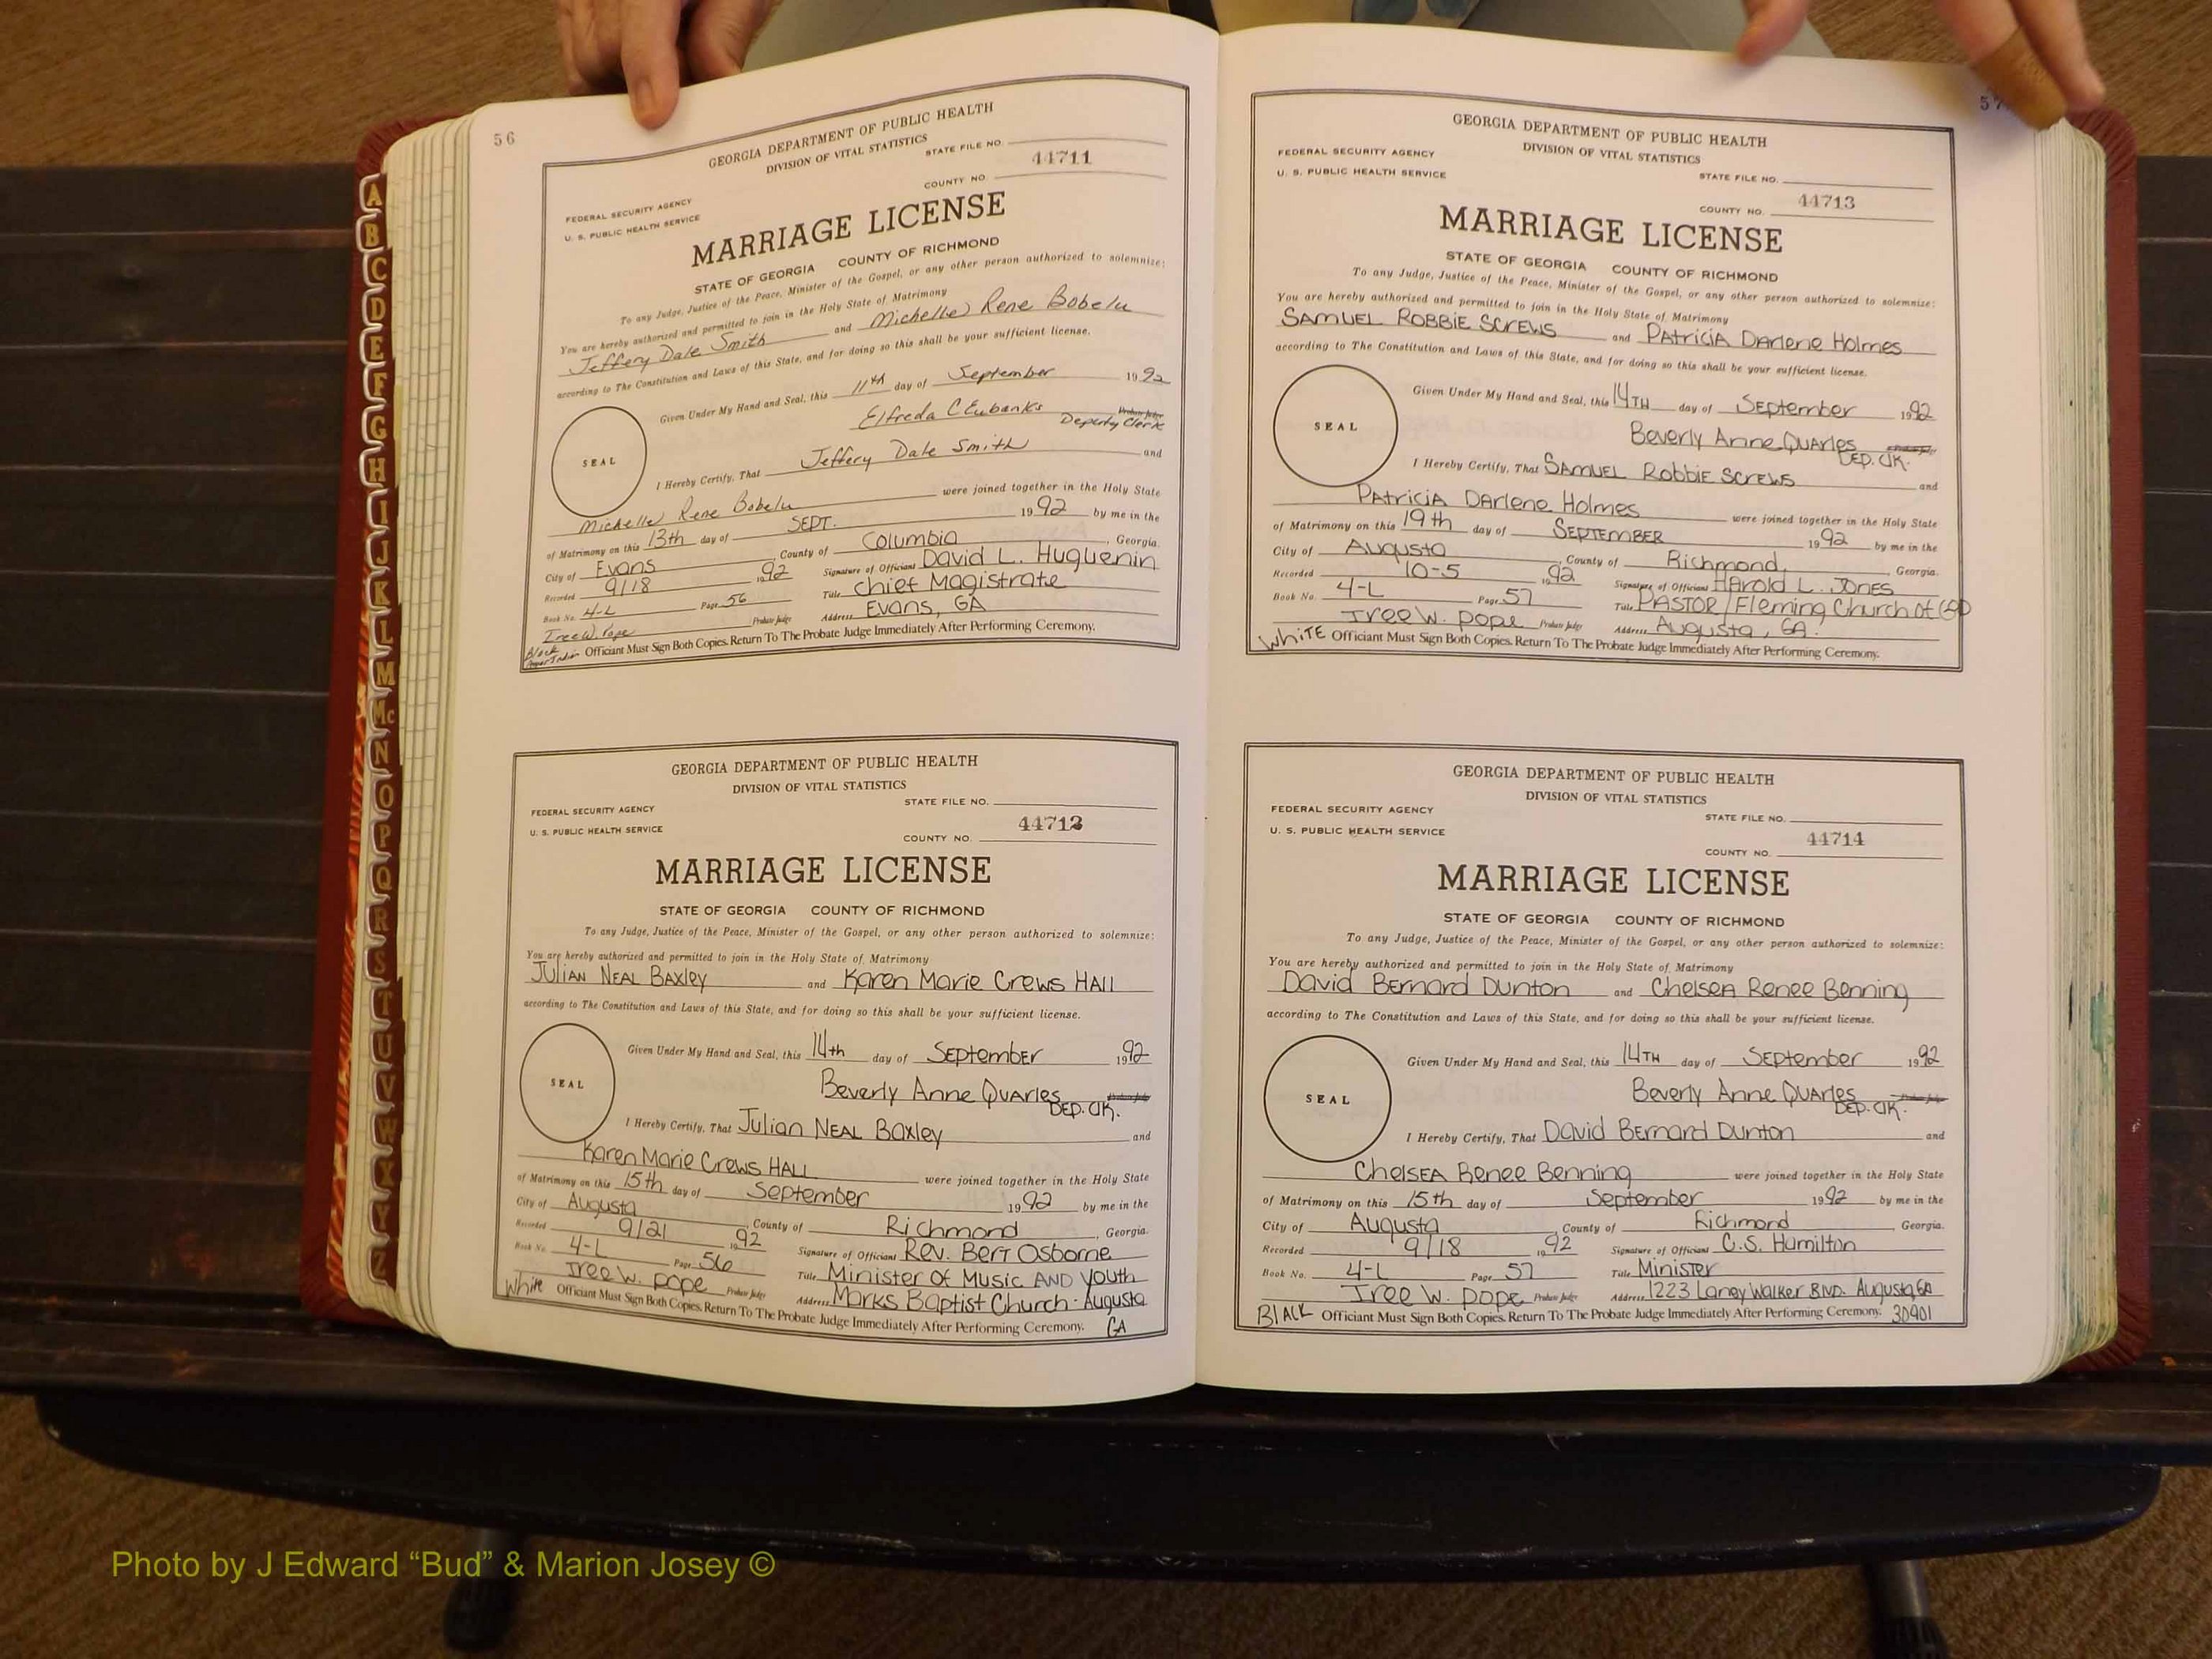 56
GEORGIA DEPARTMENT OF PUBLIC HEALTH
DIVISION OF VITAL STATISTICS
STATE FILE NO.
FEDERAL SECURITY AGENCY
U. S. PUBLIC HEALTH SERVICE
COUNTY NO. 44711
MARRIAGE LICENSE
STATE OF GEORGIA COUNTY OF RICHMOND
To any Judge, Justice of the Peace, Minister of the Gospel, or any other person authorized to solemnize:
You are hereby authorized and permitted to join in the Holy State of Matrimony
Jeffery Dale Smith and Michelle Rene Bobelu
according to The Constitution and Laws of this State, and for doing so this shall be your sufficient license.
Given Under My Hand and Seal, this 11th day of September 1992
Elfreda C Eubanks Probate Judge
Deputy Clerk
SEAL
I Hereby Certify, That Jeffery Dale Smith and
Michelle Rene Bobelu were joined together in the Holy State
of Matrimony on this 13th day of SEPT. 1992 by me in the
City of Evans County of Columbia, Georgia.
Recorded 9/18 1992 Signature of Officiant David L. Huguenin
Book No. 4-L Page 56 Title Chief Magistrate
Iree W. Pope Probate Judge Address Evans, GA
Black
Officiant Must Sign Both Copies. Return To The Probate Judge Immediately After Performing Ceremony.
GEORGIA DEPARTMENT OF PUBLIC HEALTH
DIVISION OF VITAL STATISTICS
STATE FILE NO.
FEDERAL SECURITY AGENCY
U. S. PUBLIC HEALTH SERVICE
COUNTY NO. 44712
MARRIAGE LICENSE
STATE OF GEORGIA COUNTY OF RICHMOND
To any Judge, Justice of the Peace, Minister of the Gospel, or any other person authorized to solemnize:
You are hereby authorized and permitted to join in the Holy State of Matrimony
Julian Neal Baxley and Karen Marie Crews HAll
according to The Constitution and Laws of this State, and for doing so this shall be your sufficient license.
Given Under My Hand and Seal, this 14th day of September 1992
Beverly Anne Quarles Probate Judge
DEP. Clk.
SEAL
I Hereby Certify, That Julian Neal Baxley and
Karen Marie Crews HAll were joined together in the Holy State
of Matrimony on this 15th day of September 1992 by me in the
City of Augusta, County of Richmond, Georgia.
Recorded 9/21 1992 Signature of Officiant Rev. Bert Osborne
Book No. 4-L Page 56 Title Minister of Music AND Youth
Iree W. Pope Probate Judge Address Marks Baptist Church - Augusta
White Officiant Must Sign Both Copies. Return To The Probate Judge Immediately After Performing Ceremony. GA
57
GEORGIA DEPARTMENT OF PUBLIC HEALTH
DIVISION OF VITAL STATISTICS
FEDERAL SECURITY AGENCY
U. S. PUBLIC HEALTH SERVICE
STATE FILE NO.
COUNTY NO. 44713
MARRIAGE LICENSE
STATE OF GEORGIA COUNTY OF RICHMOND
To any Judge, Justice of the Peace, Minister of the Gospel, or any other person authorized to solemnize:
You are hereby authorized and permitted to join in the Holy State of Matrimony
SAMUEL ROBBIE SCREWS and PAtriciA DArlene Holmes
according to The Constitution and Laws of this State, and for doing so this shall be your sufficient license.
Given Under My Hand and Seal, this 14TH day of September 1992
Beverly Anne Quarles Probate Judge
DEP. Clk.
SEAL
I Hereby Certify, That SAMUEL Robbie Screws and
PAtriciA DArlene Holmes were joined together in the Holy State
of Matrimony on this 19th day of SEPTEMBER 1992 by me in the
City of Augusta, County of Richmond, Georgia.
Recorded 10-5 1992 Signature of Officiant Harold L. Jones
Book No. 4-L Page 57 Title PASTOR/Fleming Church of God
Iree W. Pope Probate Judge Address Augusta, GA.
WhiTE Officiant Must Sign Both Copies. Return To The Probate Judge Immediately After Performing Ceremony.
GEORGIA DEPARTMENT OF PUBLIC HEALTH
DIVISION OF VITAL STATISTICS
FEDERAL SECURITY AGENCY
U. S. PUBLIC HEALTH SERVICE
STATE FILE NO.
COUNTY NO. 44714
MARRIAGE LICENSE
STATE OF GEORGIA COUNTY OF RICHMOND
To any Judge, Justice of the Peace, Minister of the Gospel, or any other person authorized to solemnize:
You are hereby authorized and permitted to join in the Holy State of Matrimony
David Bernard Dunton and Chelsea Renee Benning
according to The Constitution and Laws of this State, and for doing so this shall be your sufficient license.
Given Under My Hand and Seal, this 14TH day of September 1992
Beverly Anne Quarles Probate Judge
DEP. Clk.
SEAL
I Hereby Certify, That David Bernard Dunton and
Chelsea Renee Benning were joined together in the Holy State
of Matrimony on this 15th day of September 1992 by me in the
City of Augusta, County of Richmond, Georgia.
Recorded 9/18 1992 Signature of Officiant C.S. Hamilton
Book No. 4-L Page 57 Title Minister
Iree W. Pope Probate Judge Address 1223 Laney Walker Blvd. Augusta, GA
BlAck Officiant Must Sign Both Copies. Return To The Probate Judge Immediately After Performing Ceremony. 30901
A
B
C
D
E
F
G
H
I
J
K
L
M
Mc
N
O
P
Q
R
S
T
U
V
W
X
Y
Z
Photo by J Edward “Bud” & Marion Josey ©